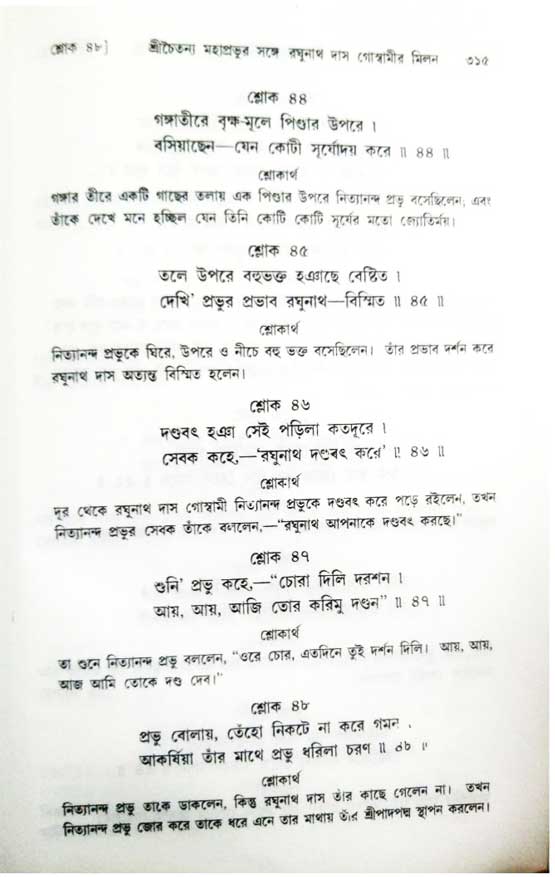 শ্লোক ৪৮]	শ্রীচৈতন্য মহাপ্রভুর সঙ্গে রঘুনাথ দাস গোস্বামীর মিলন	৩১৫
শ্লোক ৪৪
গঙ্গাতীরে বৃক্ষ-মূলে পিণ্ডার উপরে ।
বসিয়াছেন—যেন কোটী সূর্যোদয় করে ॥ ৪৪ ॥
শ্লোকার্থ
গঙ্গার তীরে একটি গাছের তলায় এক পিণ্ডার উপরে নিত্যানন্দ প্রভু বসেছিলেন; এবং
তাঁকে দেখে মনে হচ্ছিল যেন তিনি কোটি কোটি সূর্যের মতো জ্যোতির্ময়।
শ্লোক ৪৫
তলে উপরে বহুভক্ত হঞাছে বেষ্টিত ।
দেখি' প্রভুর প্রভাব রঘুনাথ—বিস্মিত ॥ ৪৫ ॥
শ্লোকার্থ
নিত্যানন্দ প্রভুকে ঘিরে, উপরে ও নীচে বহু ভক্ত বসেছিলেন। তাঁর প্রভাব দর্শন করে
রঘুনাথ দাস অত্যন্ত বিস্মিত হলেন।
শ্লোক ৪৬
দণ্ডবৎ হঞা সেই পড়িলা কতদূরে ।
সেবক কহে,—'রঘুনাথ দণ্ডবৎ করে' ॥ ৪৬ ॥
শ্লোকার্থ
দূর থেকে রঘুনাথ দাস গোস্বামী নিত্যানন্দ প্রভুকে দণ্ডবৎ করে পড়ে রইলেন, তখন
নিত্যানন্দ প্রভুর সেবক তাঁকে বললেন,—"রঘুনাথ আপনাকে দণ্ডবৎ করছে।"
শ্লোক ৪৭
শুনি' প্রভু কহে,—"চোরা দিলি দরশন ।
আয়, আয়, আজি তোর করিমু দণ্ডন" ॥ ৪৭ ॥
শ্লোকার্থ
তা শুনে নিত্যানন্দ প্রভু বললেন, "ওরে চোর, এতদিনে তুই দর্শন দিলি। আয়, আয়,
আজ আমি তোকে দণ্ড দেব।"
শ্লোক ৪৮
প্রভু বোলায়, তেঁহো নিকটে না করে গমন ।
আকর্ষিয়া তাঁর মাথে প্রভু ধরিলা চরণ ॥ ৪৮ ॥
শ্লোকার্থ
নিত্যানন্দ প্রভু তাকে ডাকলেন, কিন্তু রঘুনাথ দাস তাঁর কাছে গেলেন না। তখন
নিত্যানন্দ প্রভু জোর করে তাকে ধরে এনে তার মাথায় তাঁর শ্রীপাদপদ্ম স্থাপন করলেন।